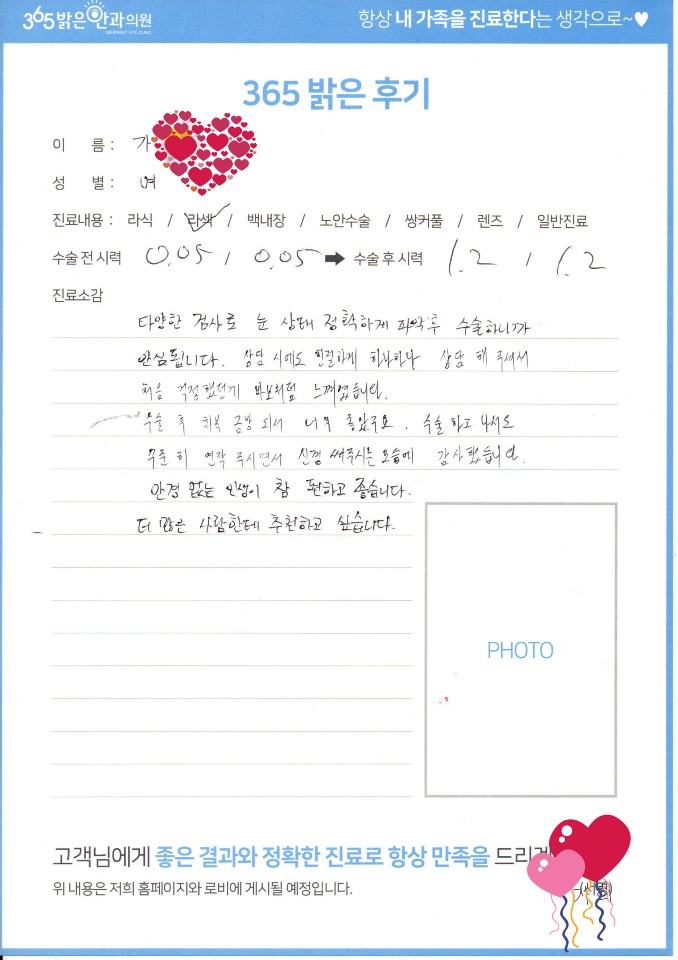 365밝은안과의원
항상 내 가족을 진료한다는 생각으로~♥
365 밝은 후기
이 름 : 가
성 별 : 여
진료내용 : 라식 / 라섹 / 백내장 / 노안수술 / 쌍커풀 / 렌즈 / 일반진료
수술 전 시력 0.05 / 0.05 ➡ 수술 후 시력 1.2 / 1.2
진료소감
다양한 검사로 눈 상태 정확하게 파악후 수술하니까
안심됩니다. 상담 시에도 친절하게 하나하나 상담 해 주셔서
처음 걱정했던게 바보처럼 느껴졌습니다.
수술 후 회복 금방 되서 너무 좋았구요. 수술 하고 나서도
꾸준히 연락 주시면서 신경 써주시는 모습에 감사했습니다.
안경 없는 인생이 참 편하고 좋습니다.
더 많은 사람한테 추천하고 싶습니다.
PHOTO
고객님에게 좋은 결과와 정확한 진료로 항상 만족을 드리
위 내용은 저희 홈페이지와 로비에 게시될 예정입니다.